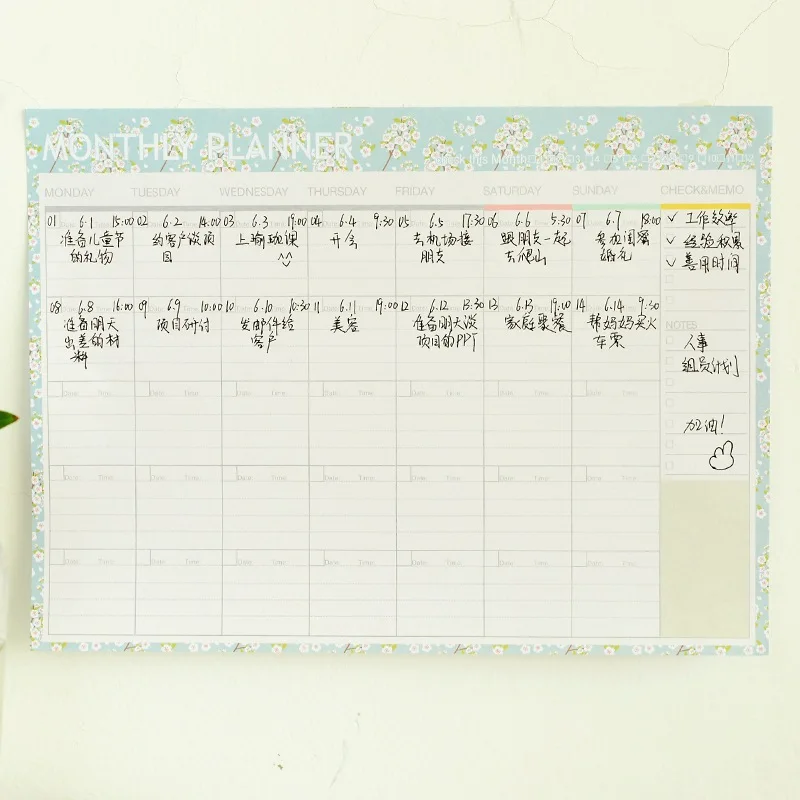 MONTHLY PLANNER
MONDAY TUESDAY WEDNESDAY THURSDAY FRIDAY SATURDAY SUNDAY CHECK&MEMO
01 6.1 15:00
准备儿童节
的礼物
02 6.2 14:00
约客户谈项
目
03 6.3 19:00
上瑜珈课
04 6.4 9:30
开会
05 6.5 17:30
去机场接
朋友
06 6.6 5:30
跟朋友一起
去爬山
07 6.7 18:00
参加闺蜜
婚礼
工作效率
经验积累
善用时间
08 6.8 16:00
准备明天
出差的材
料
09 6.9 10:00
项目研讨
10 6.10 10:30
发邮件给
客户
11 6.11 19:00
美容
12 6.12 18:30
准备明天谈
项目的PPT
13 6.13 19:00
家庭聚餐
14 6.14 9:30
帮妈妈买火
车票
NOTES
人事
组员计划
加油!
Date: Time: Date: Time: Date: Time: Date: Time: Date: Time: Date: Time: Date: Time:
Date: Time: Date: Time: Date: Time: Date: Time: Date: Time: Date: Time: Date: Time:
Date: Time: Date: Time: Date: Time: Date: Time: Date: Time: Date: Time: Date: Time: